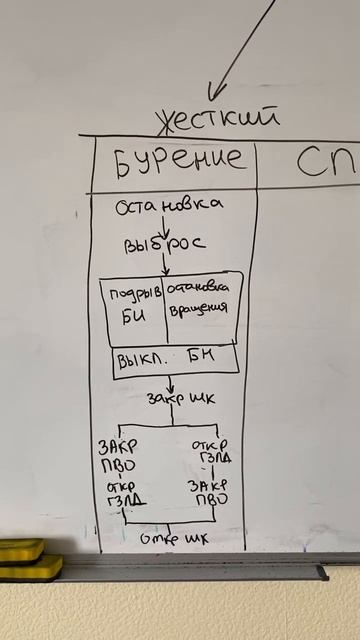 жесткий
БУРЕНИЕ
СП
ОСТАНОВКА
ВЫБРОС
ПОДРЫВ
БИ
ОСТАНОВКА
ВРАЩЕНИЯ
ВЫКЛ. БН
ЗАКР ШК
ЗАКР
ПВО
ОТКР
ГЗЛД
ОТКР
ГЗЛД
ЗАКР
ПВО
ОТКР ШК